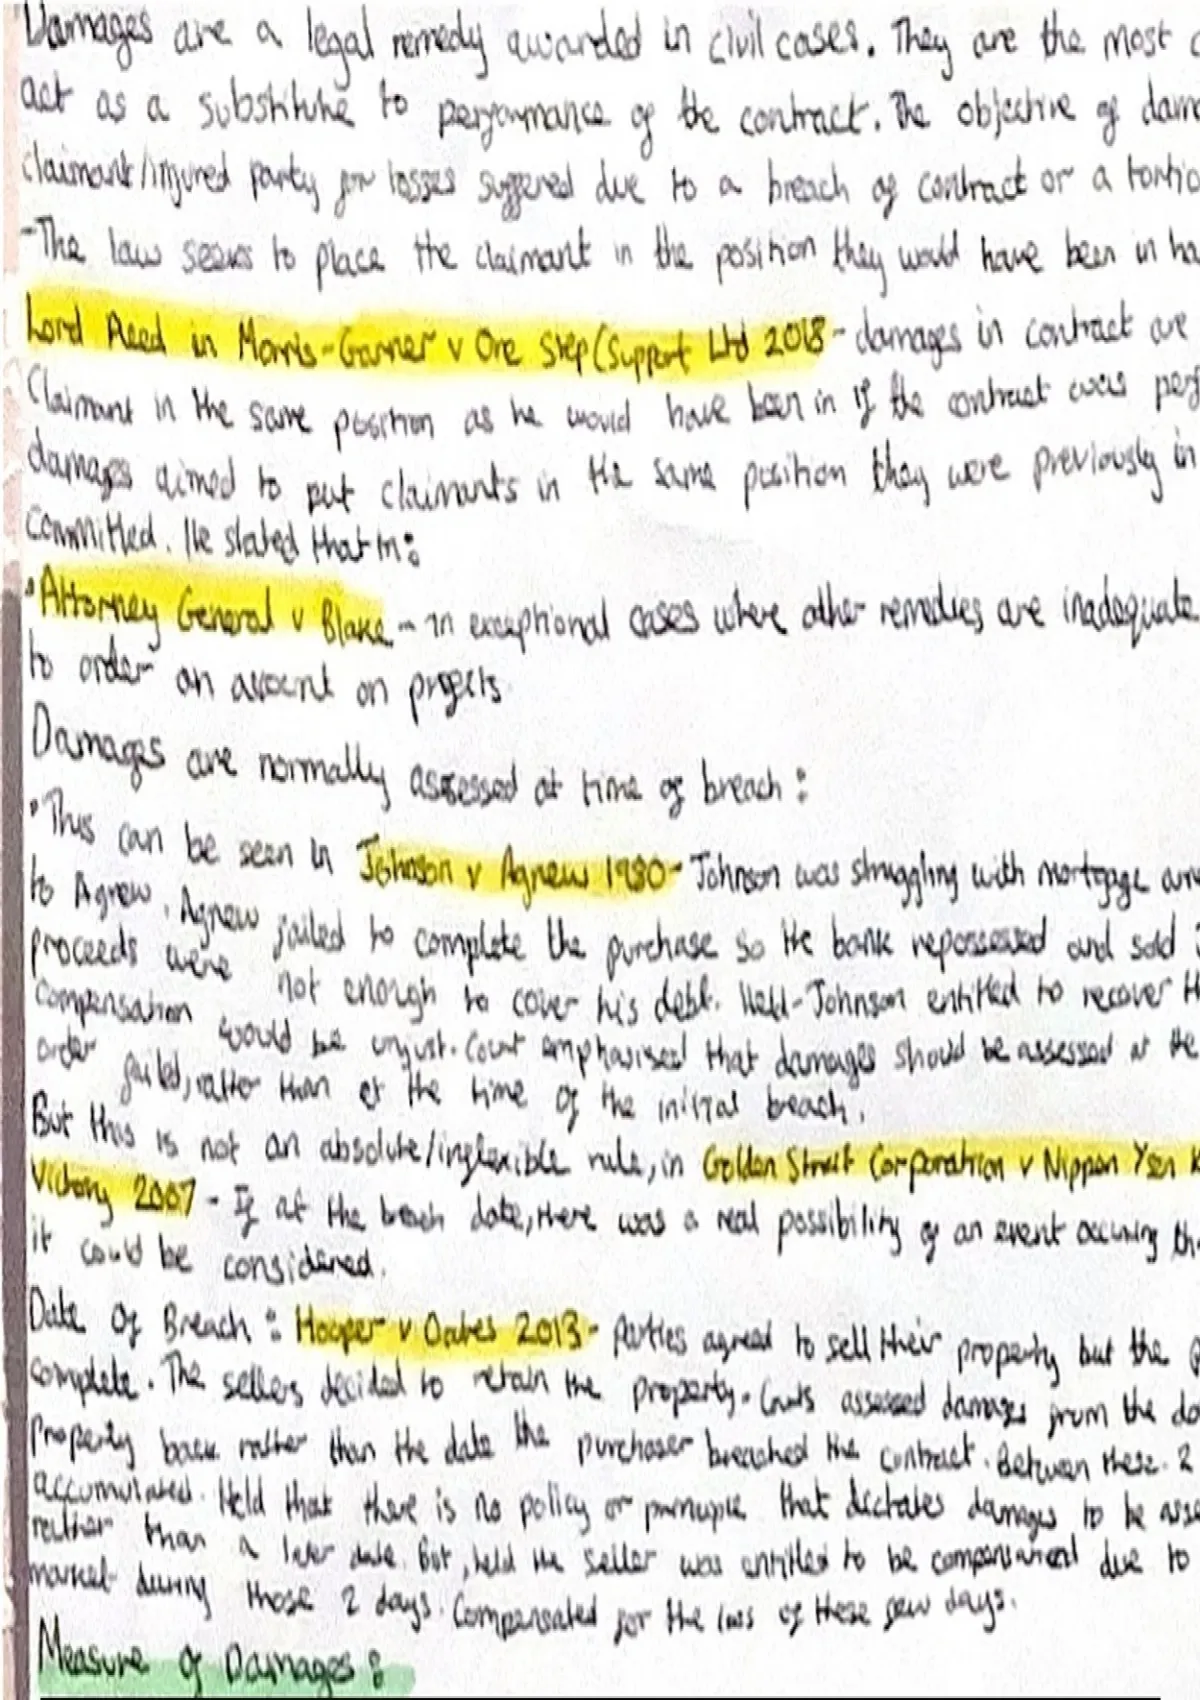 Damages are a legal remedy awarded in civil cases. They are the most c
act as a substitute to performance of the contract. The objective of dam
claimant/injured party for losses suffered due to a breach of contract or a tortio
-The law seeks to place the claimant in the position they would have been in ha
Lord Reed in Morris-Garner v One Step (Support Ltd 2018 - damages in contract are
Claimant in the same position as he would have been in if the contract was perf
damages aimed to put claimants in the same position they were previously in
committed. He stated that in:
•Attorney General v Blake - in exceptional cases where other remedies are inadequate
to order an account on profits
Damages are normally assessed at time of breach:
•This can be seen in Johnson v Agnew 1980 - Johnson was struggling with mortgage arre
to Agnew. Agnew failed to complete the purchase so the bank repossessed and sold
proceeds were not enough to cover his debt. Held - Johnson entitled to recover th
compensation would be unjust. Court emphasised that damages should be assessed at the
order failed, rather than at the time of the initial breach.
But this is not an absolute/inflexible rule, in Golden Strait Corporation v Nippon Ysen K
Victory 2007 - If at the breach date, there was a real possibility of an event occuring th
it could be considered.
Date Of Breach: Hooper v Oates 2013 - Parties agreed to sell their property but the p
complete. The sellers decided to retain the property. Courts assessed damages from the da
property back rather than the date the purchaser breached the contract. Between these 2
accumulated. Held that there is no policy or principle that dictates damages to be asse
rather than a later date. But, held the seller was entitled to be compensated due to
market during those 2 days. Compensated for the loss of these few days.
Measure of Damages: